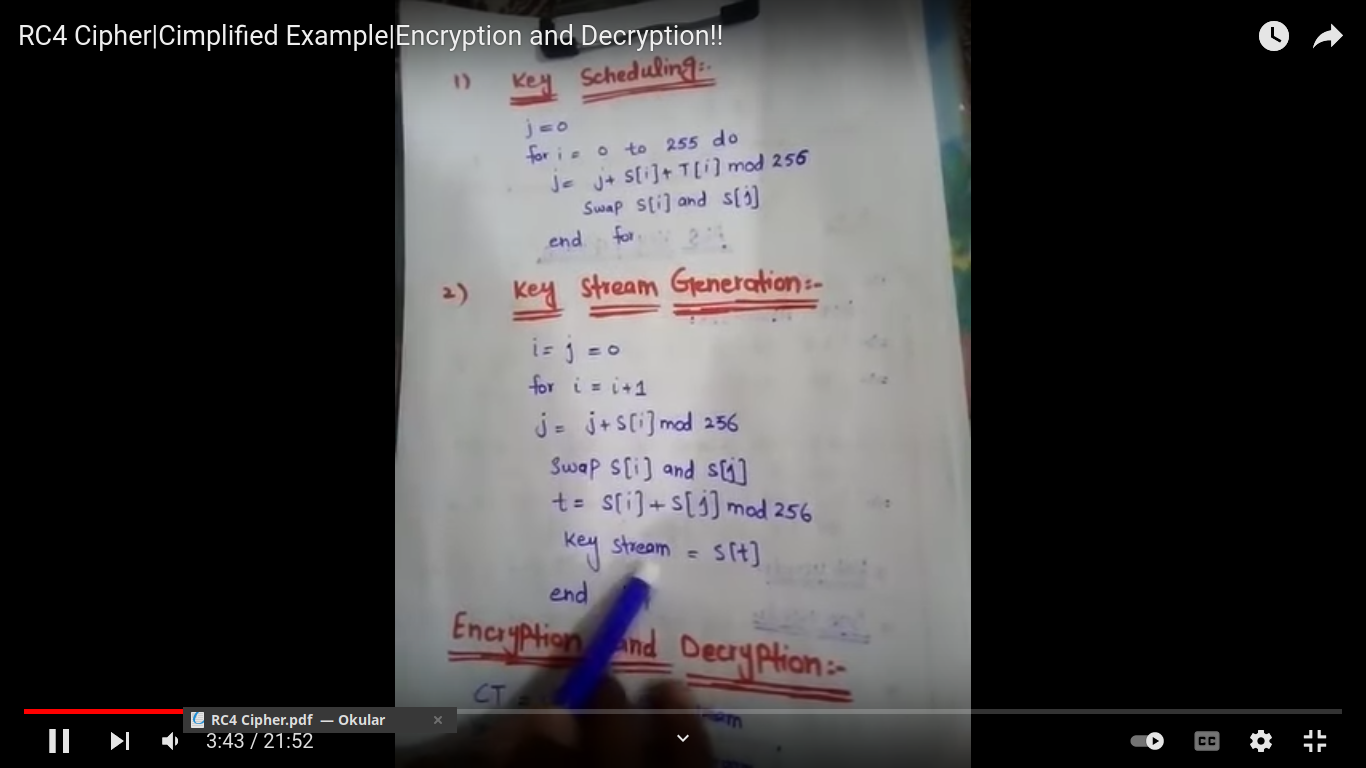 RC4 Cipher|Cimplified Example|Encryption and Decryption!!
1) Key Scheduling:-
j=0
for i = 0 to 255 do
j= j+ S[i]+ T[i] mod 256
Swap S[i] and S[j]
end for
2) Key Stream Generation:-
i= j =0
for i = i+1
j= j+S[i] mod 256
Swap S[i] and S[j]
t= S[i]+S[j] mod 256
Key Stream = S[t]
end
Encryption and Decryption:-
CT =
RC4 Cipher.pdf — Okular
3:43 / 21:52
CC